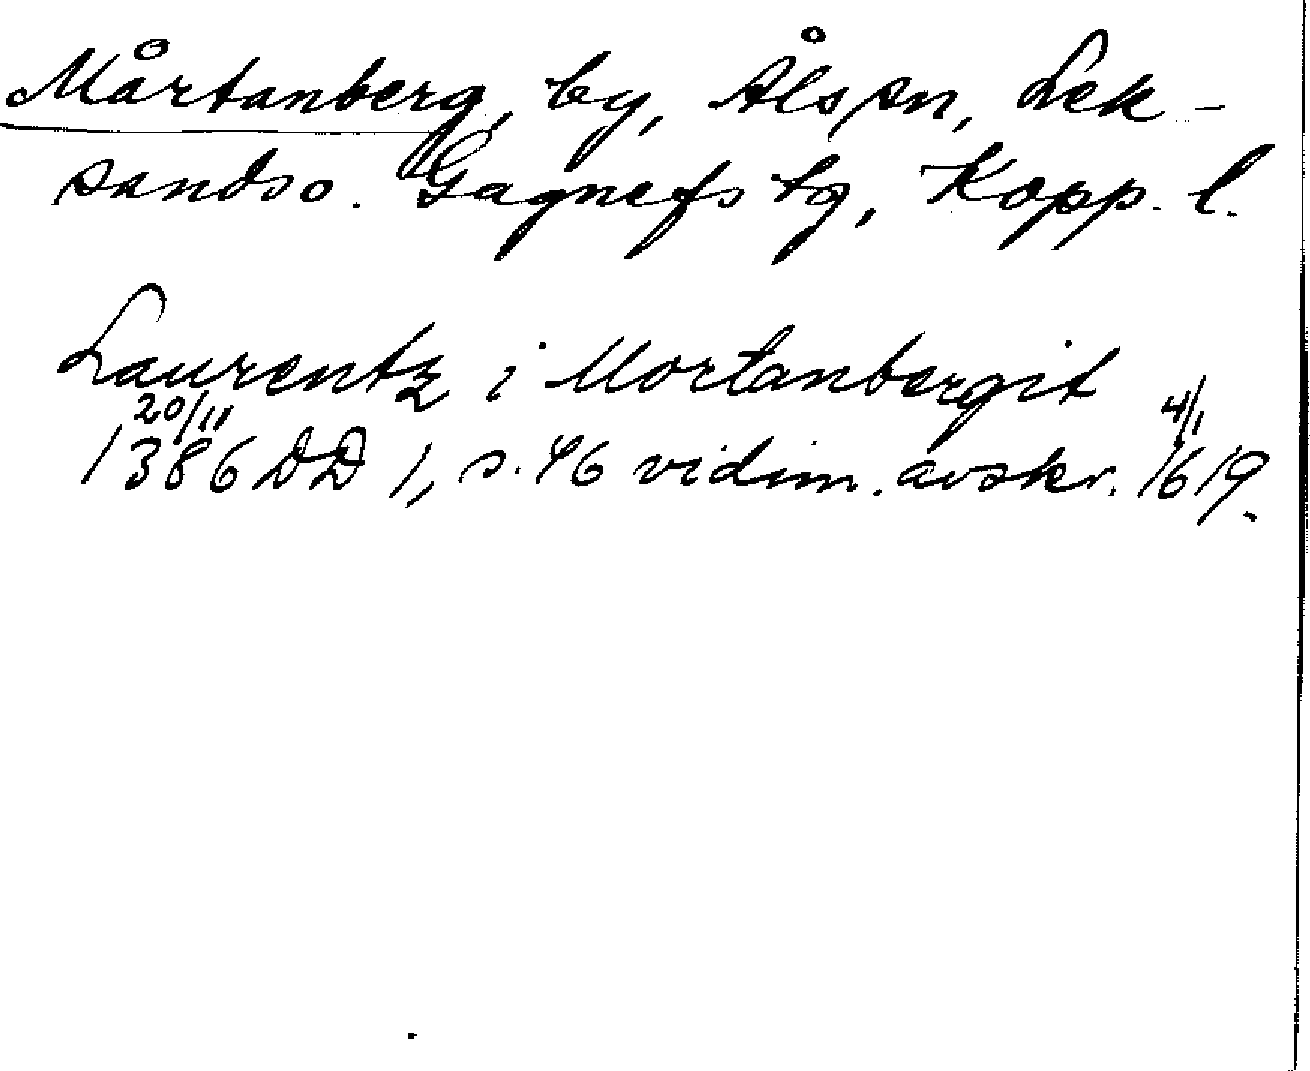 Mårtanberg, by, Åls sn, Lek-
sands o. Gagnefs tg, Kopp. l.
Laurentz i Mortanbergit
20/11 4/1
1386 DD 1, s. 46 vidim. avskr. 1619.